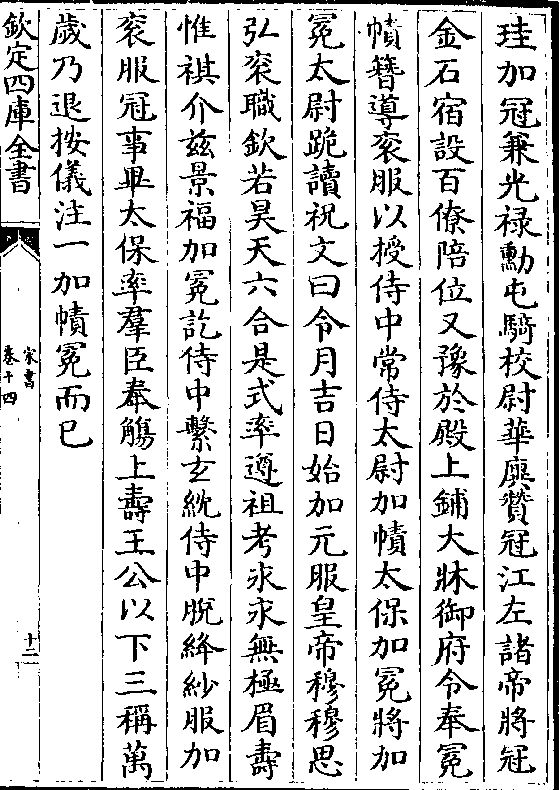 珪加冠兼光禄勳屯騎校尉華廙贊冠江左諸帝將冠
金石宿設百僚陪位又豫於殿上鋪大牀御府令奉冕
幘簪導衮服以授侍中常侍太尉加幘太保加冕將加
冕太尉跪讀祝文曰令月吉日始加元服皇帝穆穆思
弘衮職欽若昊天六合是式率遵祖考永永無極眉壽
惟祺介兹景福加冕訖侍中繫玄紞侍中脱絳紗服加
衮服冠事畢太保率羣臣奉觴上壽王公以下三稱萬
歲乃退按儀注一加幘冕而已
欽定四庫全書
宋書
卷十四
十二